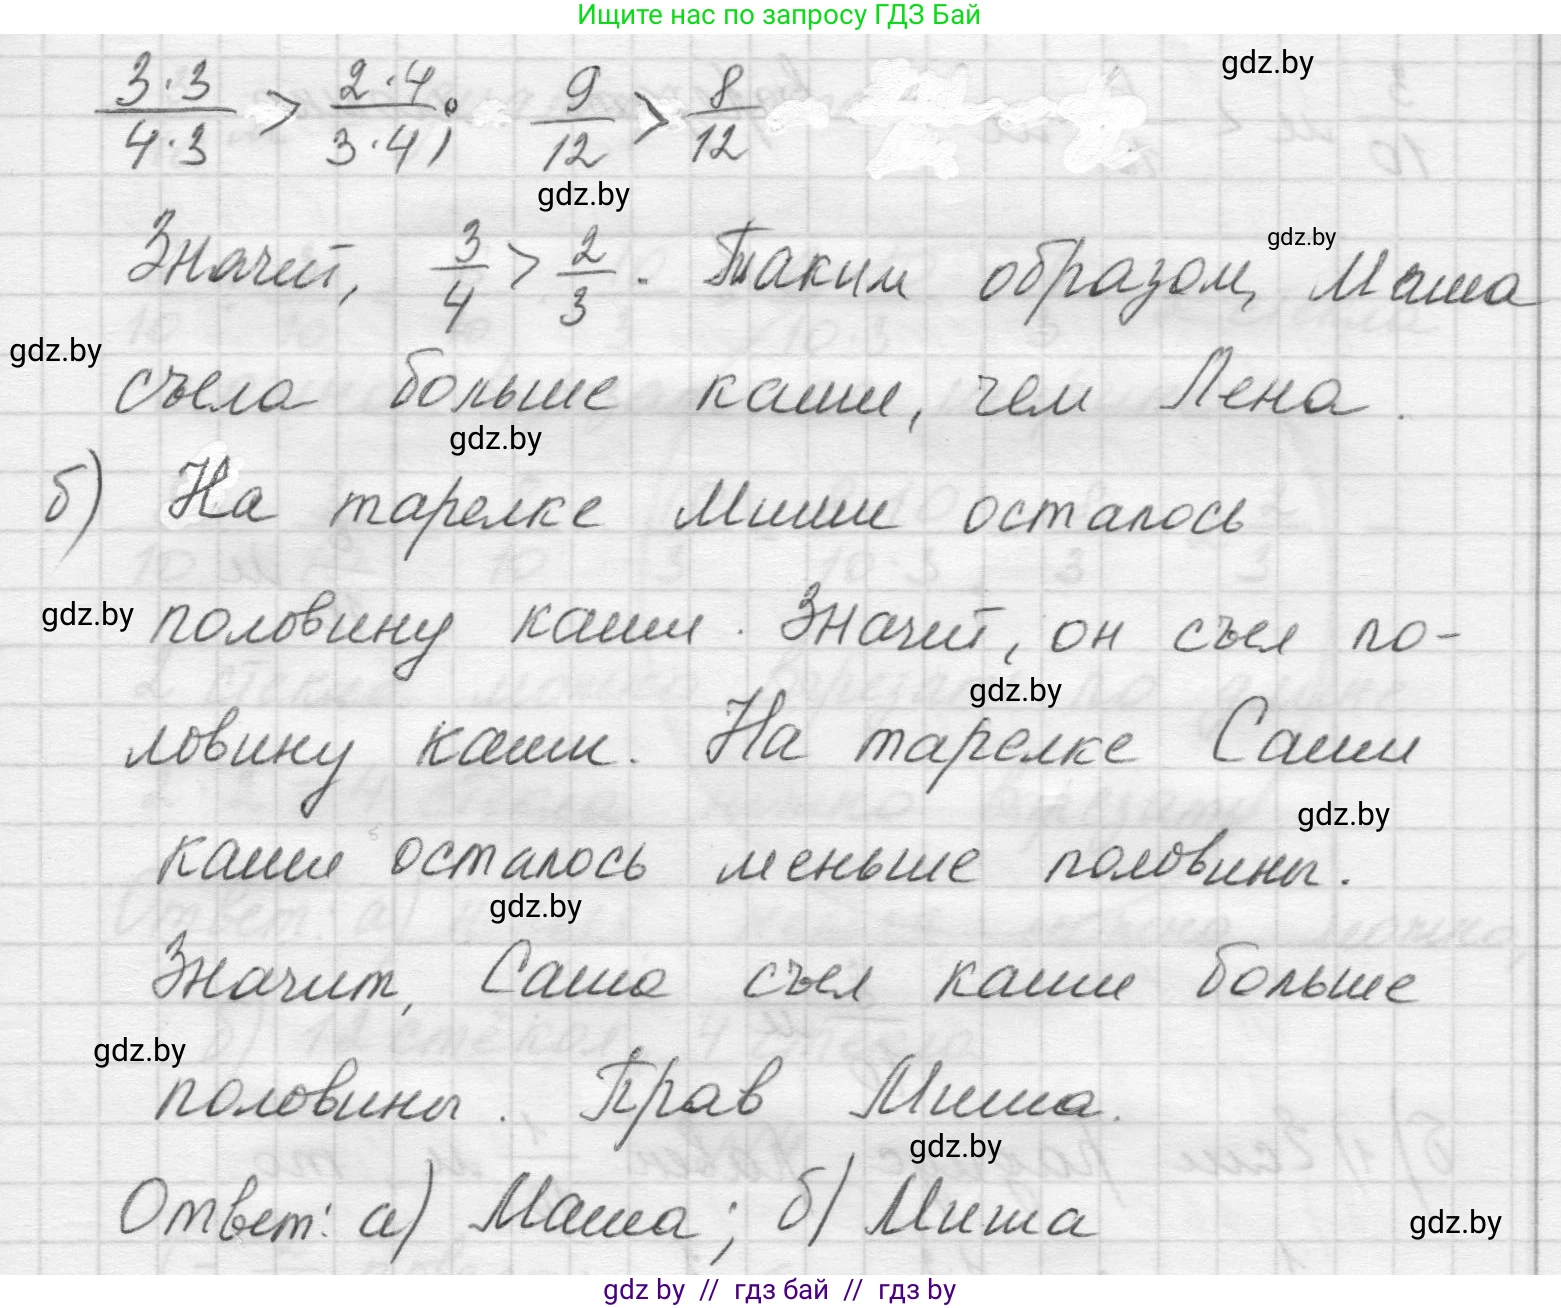 Ищите нас по запросу ГДЗ Бай
gdz.by
3·3/4·3 > 2·4/3·4; 9/12 > 8/12
gdz.by
Значит, 3/4 > 2/3. Таким образом, Маша
gdz.by
gdz.by
съела больше каши, чем Лена.
gdz.by
б) На тарелке Миши осталось
gdz.by
половину каши. Значит, он съел по-
gdz.by
ловину каши. На тарелке Саши
gdz.by
каши осталось меньше половины.
gdz.by
Значит, Саша съел каши больше
gdz.by
половины. Прав Миша.
gdz.by
Ответ: а) Маша; б) Миша
gdz.by
gdz by // гдз бай // гдз by